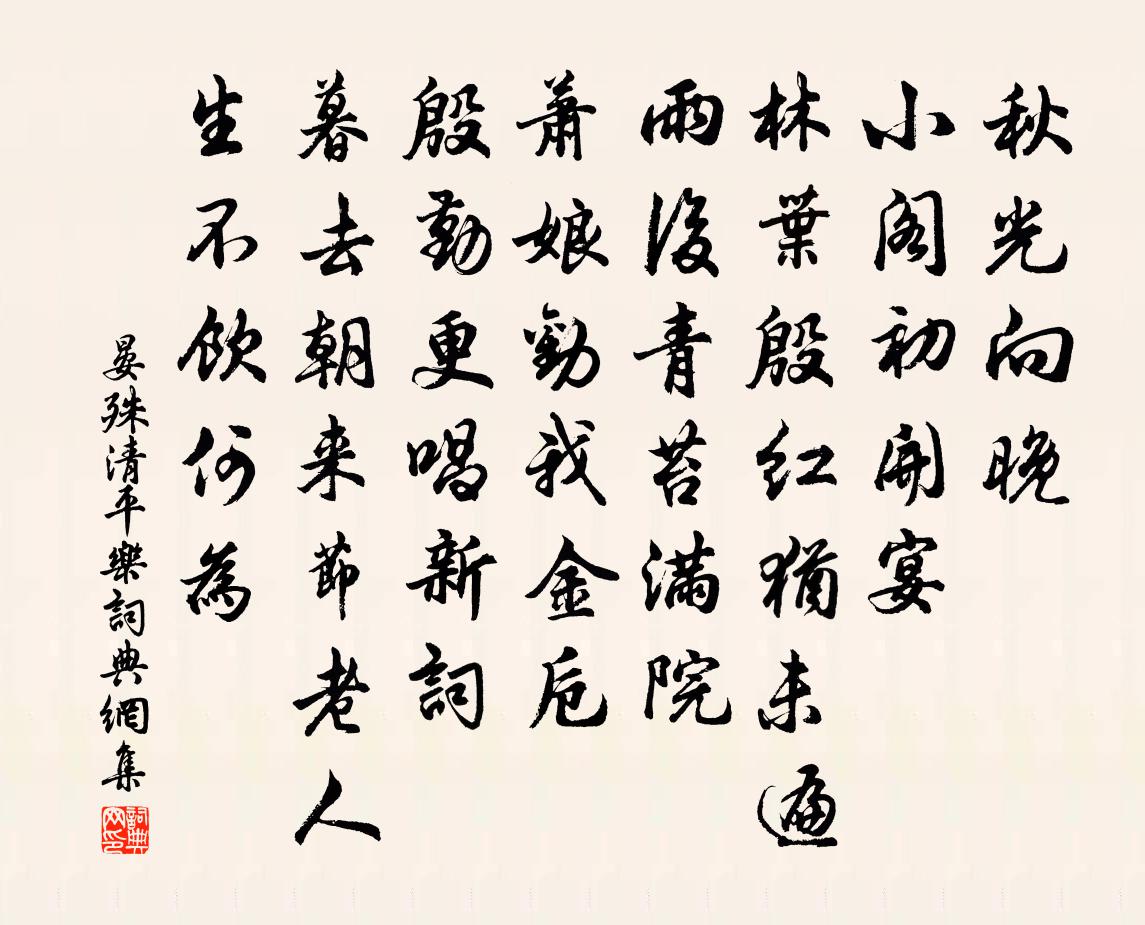 秋光向晚
小阁初開宴
林葉殷红猶未遍
雨後青苔滿院
萧娘勸我金卮
殷勤更唱新詞
暮去朝来節老人
生不飲何為
晏殊清平樂詞典網集
詞典網印